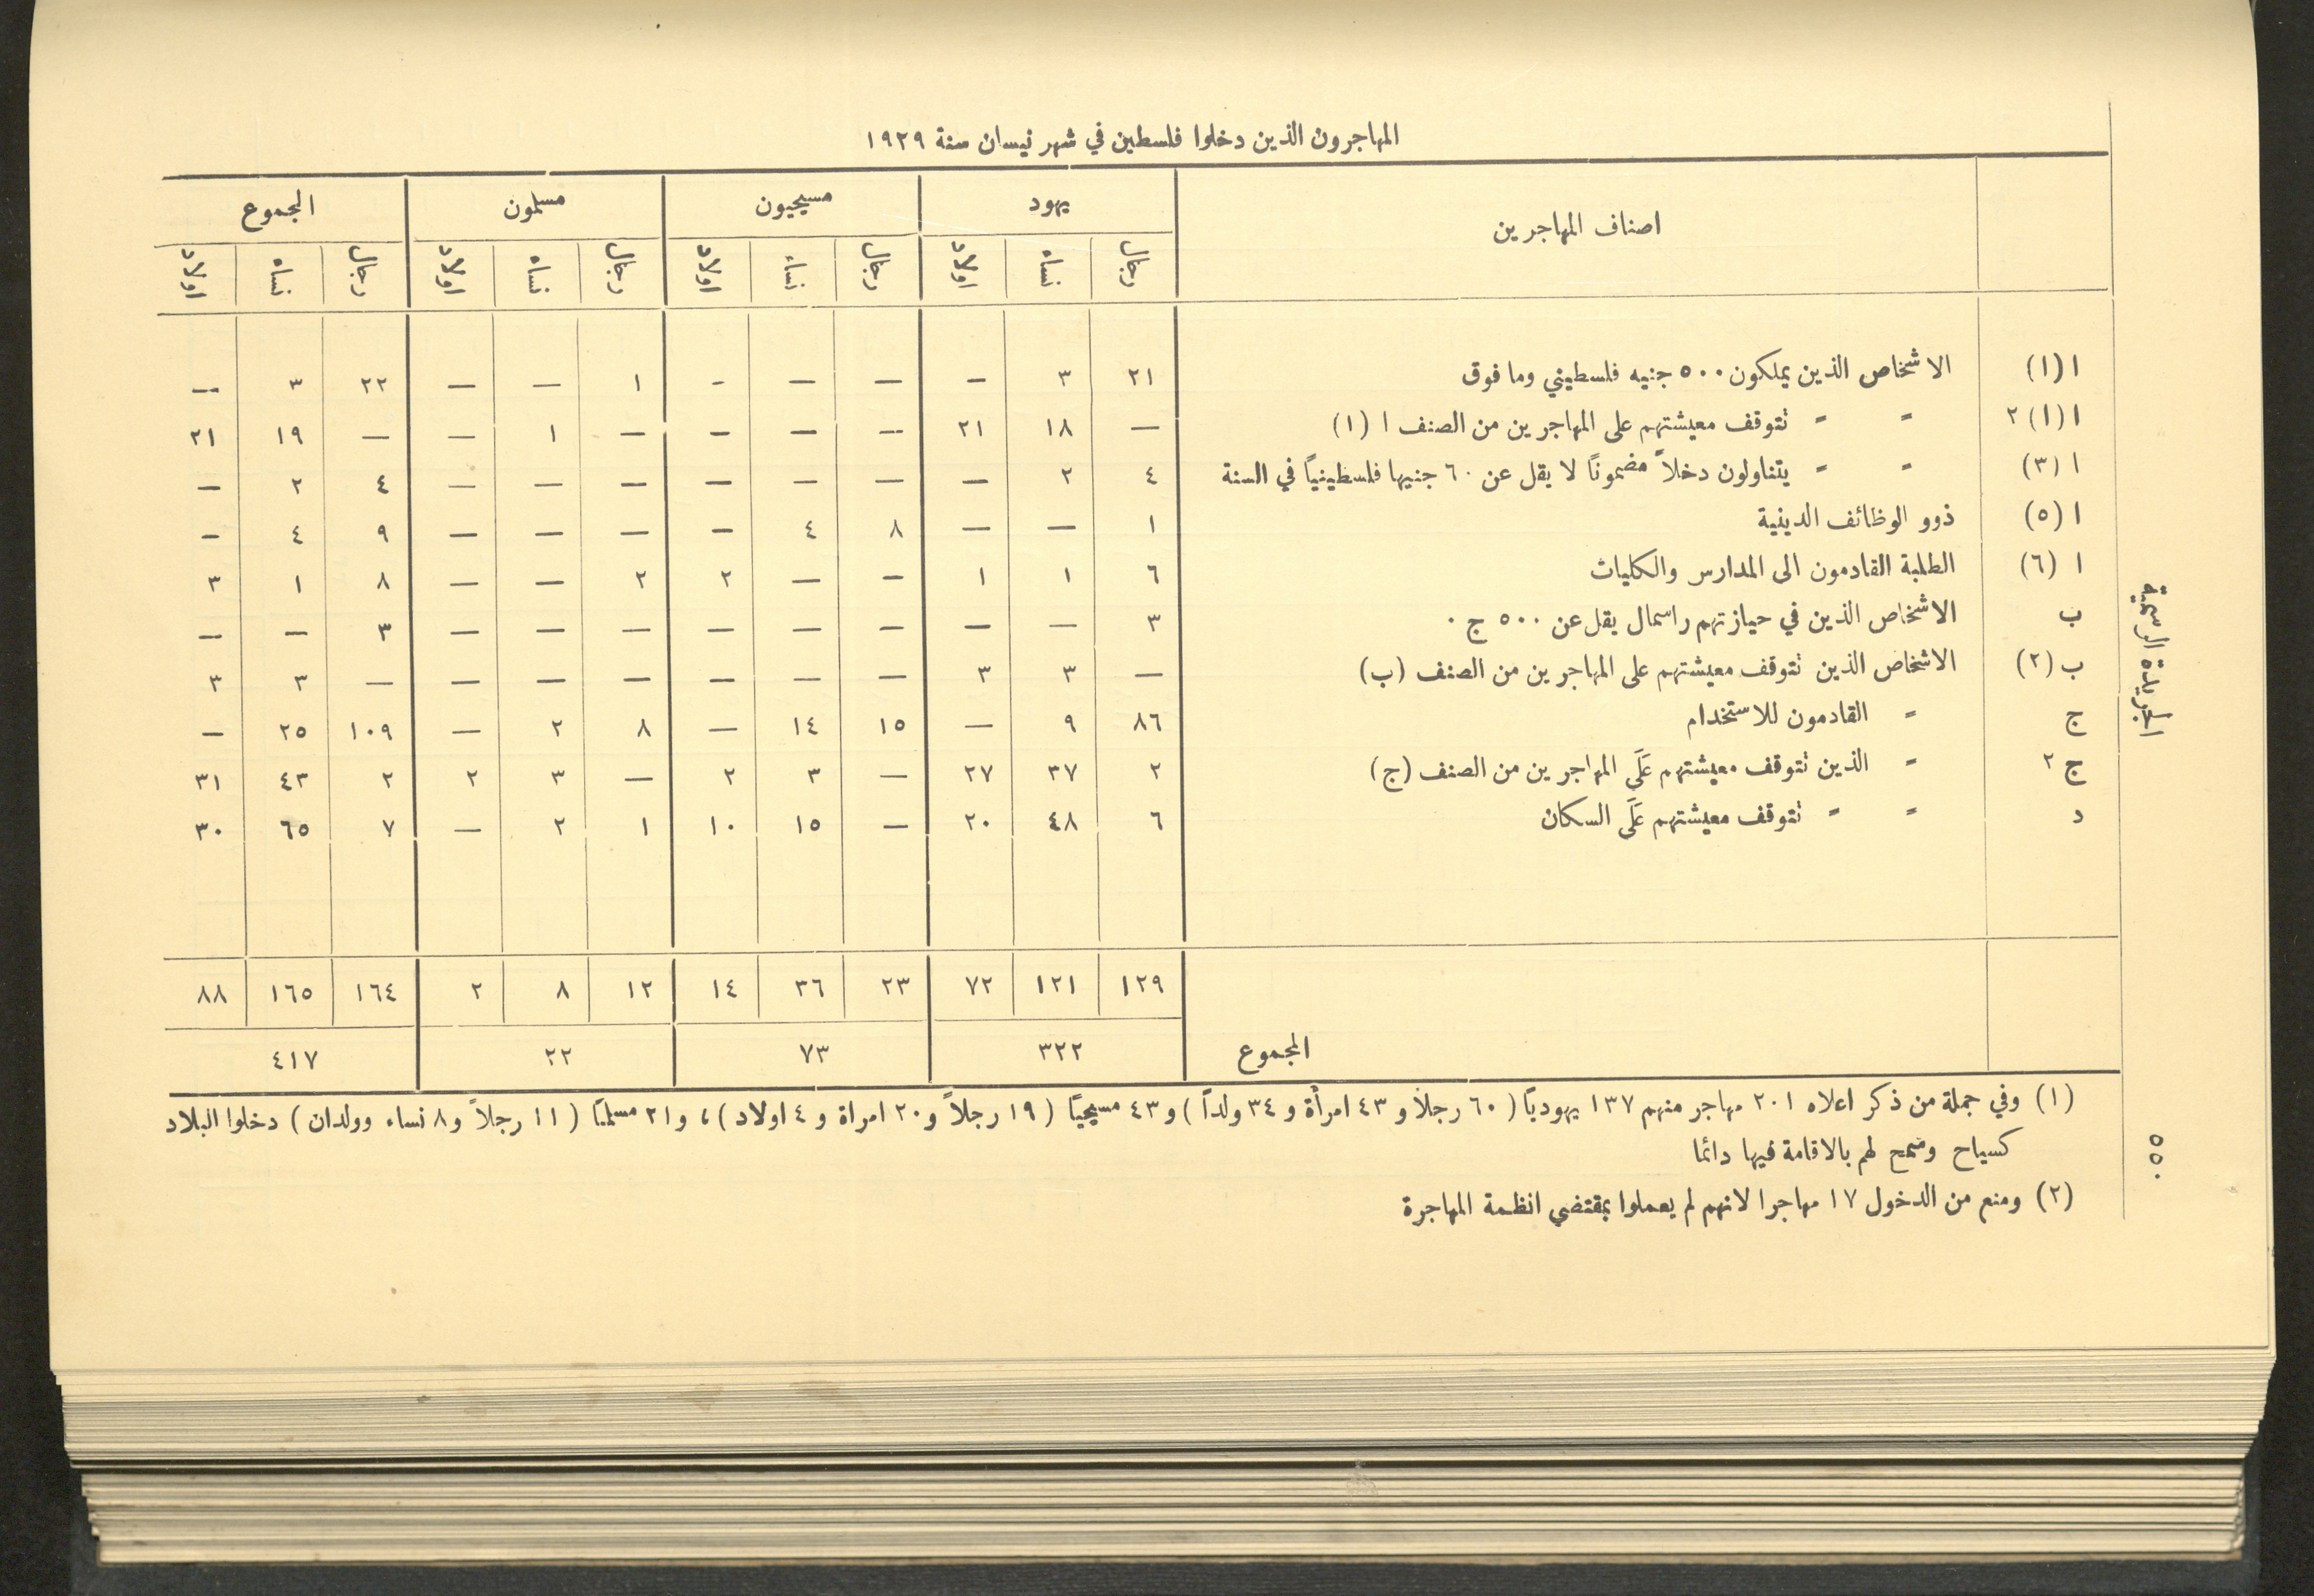 المهاجرون الذين دخلوا فلسطين في شهر نيسان سنة ١٩٢٩
اصناف المهاجرين يهود مسيحيون مسلمون المجموع
رجال نساء اولاد رجال نساء اولاد رجال نساء اولاد رجال نساء اولاد
ا (١) الاشخاص الذين يملكون ٥٠٠ جنيه فلسطيني وما فوق ٢١ ٣ — — — - ١ — — ٢٢ ٣ —
ا (١) ٢ = = تتوقف معيشتهم على المهاجرين من الصنف ا (١) — ١٨ ٢١ — — — — ١ — — ١٩ ٢١
ا (٣) = = يتناولون دخلاً مضموناً لا يقل عن ٦٠ جنيها فلسطينياً في السنة ٤ ٢ — — — — — — — ٤ ٢ —
ا (٥) ذوو الوظائف الدينية ١ — — ٨ ٤ — — — — ٩ ٤ -
ا (٦) الطلبة القادمون الى المدارس والكليات ٦ ١ ١ - — ٢ ٢ — — ٨ ١ ٣
ب الاشخاص الذين في حيازتهم راسمال يقل عن ٥٠٠ ج ٠ ٣ — — — — — — — — ٣ — —
ب (٢) الاشخاص الذين تتوقف معيشتهم على المهاجرين من الصنف (ب) — ٣ ٣ — — — — — — — ٣ ٣
ج = القادمون للاستخدام ٨٦ ٩ — ١٥ ١٤ — ٨ ٢ — ١٠٩ ٢٥ —
ج ٢ = الذين تتوقف معيشتهم عَلَى المهاجرين من الصنف (ج) ٢ ٣٧ ٢٧ — ٣ ٢ — ٣ ٢ ٢ ٤٣ ٣١
د = = تتوقف معيشتهم عَلَى السكان ٦ ٤٨ ٢٠ — ١٥ ١٠ ١ ٢ — ٧ ٦٥ ٣٠
١٢٩ ١٢١ ٧٢ ٢٣ ٣٦ ١٤ ١٢ ٨ ٢ ١٦٤ ١٦٥ ٨٨
المجموع ٣٢٢ ٧٣ ٢٢ ٤١٧
(١) وفي جملة من ذكر اعلاه ٢٠١ مهاجر منهم ١٣٧ يهودياً (٦٠ رجلاً و ٤٣ امرأة و ٣٤ ولداً) و ٤٣ مسيحياً (١٩ رجلاً و ٢٠ امراة و ٤ اولاد)، و ٢١ مسلماً (١١ رجلاً و ٨ نساء وولدان) دخلوا البلاد
كسياح وسمح لهم بالاقامة فيها دائما
(٢) ومنع من الدخول ١٧ مهاجرا لانهم لم يعملوا بمقتضى انظمة المهاجرة
الجريدة الرسمية
٥٥٠